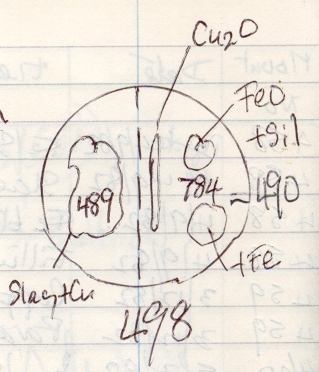 Cu2O
FeO
+Sil
489
784 - 490
+Fe
Slag+Cu
498